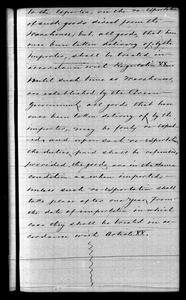 to the exporter, on the re-exportation
of such goods direct from the
Warehouse, but all goods that have
once been taken delivery of by the
importer, shall be treated in
accordance with Regulation
Until such time as Warehouses
are established by the
Government, all goods that have
once been taken delivery of by the
importer, may be freely re-export-
ed, and upon such re-exportation
the duties paid shall be refunded,
provided, the goods are in the same
condition as when imported,
unless such re-exportation shall
take place after one year from
the date of importation in which
case they shall be treated in ac-
cordance with Article XX.